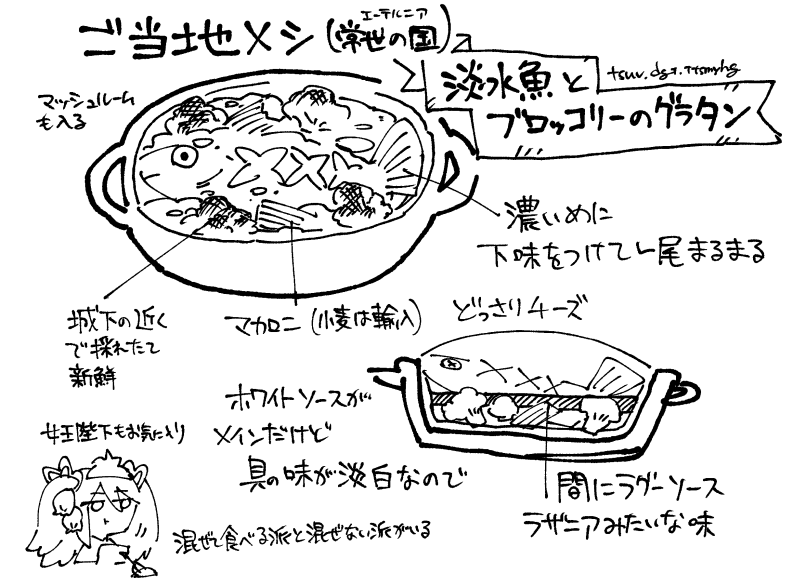 エーテルニア
ご当地メシ(常世の国)
淡水魚と
ブロッコリーのグラタン
マッシュルーム
も入る
濃いめに
下味をつけて一尾まるまる
城下の近く
で採れたて
新鮮
マカロニ(小麦は輸入)
どっさりチーズ
ホワイトソースが
メインだけど
具の味が淡白なので
間にラグーソース
ラザニアみたいな味
女王陛下もお気に入り
混ぜて食べる派と混ぜない派がいる